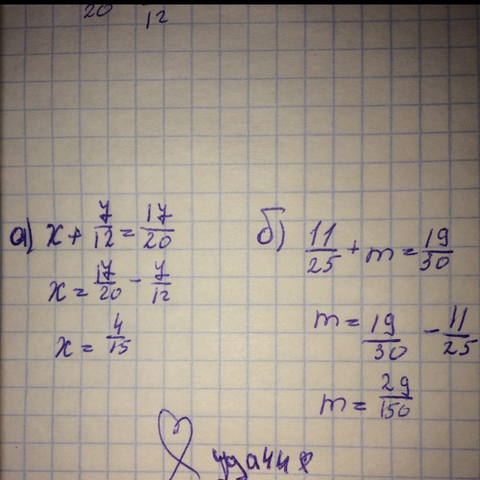 20 12
а) x + 7/12 = 17/20
x = 17/20 - 7/12
x = 4/15
б) 11/25 + m = 19/30
m = 19/30 - 11/25
m = 29/150
удачи